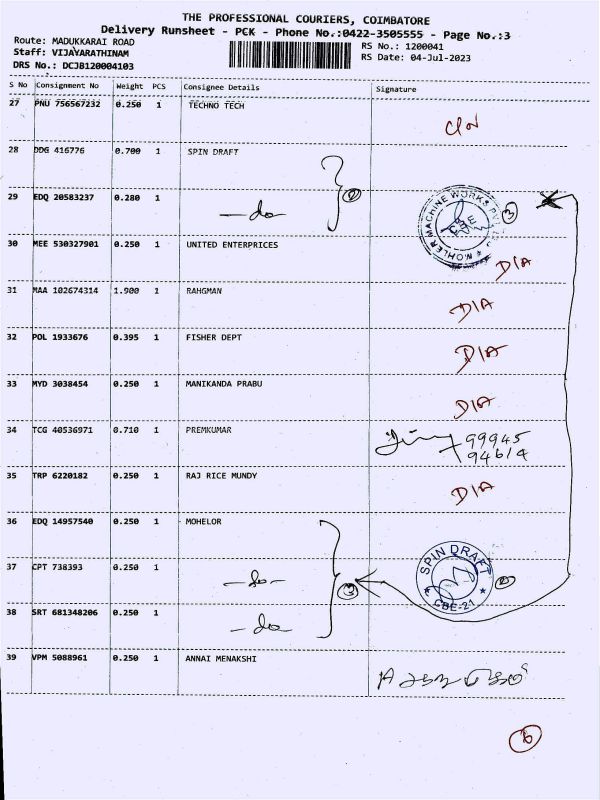 THE PROFESSIONAL COURIERS, COIMBATORE
Delivery Runsheet - PCK - Phone No.:0422-3505555 - Page No.:3
Route: MADUKKARAI ROAD
Staff: VIJAYARATHINAM
DRS No.: DCJB120004103
RS No.: 1200041
RS Date: 04-Jul-2023
S No Consignment No Weight PCS Consignee Details Signature
27 PNU 756567232 0.250 1 TECHNO TECH
28 DDG 416776 0.700 1 SPIN DRAFT
29 EDQ 20583237 0.280 1 -do- MOHLER MACHINE WORKS PVT 3
30 MEE 530327901 0.250 1 UNITED ENTERPRICES D/A
31 MAA 102674314 1.900 1 RAHGMAN D/A
32 POL 1933676 0.395 1 FISHER DEPT D/A
33 MYD 3038454 0.250 1 MANIKANDA PRABU D/A
34 TCG 40536971 0.710 1 PREMKUMAR 99945
35 TRP 6220182 0.250 1 RAJ RICE MUNDY D/A
36 EDQ 14957540 0.250 1 MOHELOR
37 CPT 738393 0.250 1 -do- 3 SPIN DRAFT CBE-21
38 SRT 681348206 0.250 1 -do-
39 VPM 5088961 0.250 1 ANNAI MENAKSHI
6